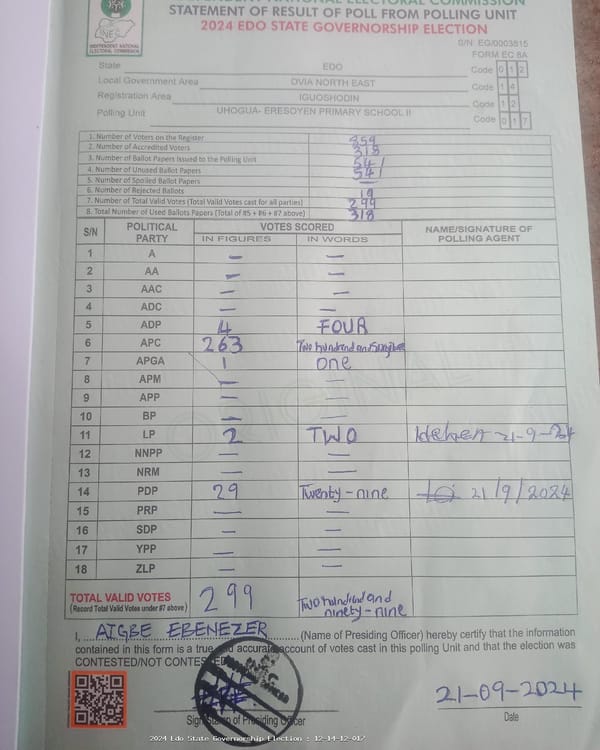 INDEPENDENT NATIONAL ELECTORAL COMMISSION
STATEMENT OF RESULT OF POLL FROM POLLING UNIT
2024 EDO STATE GOVERNORSHIP ELECTION
INEC
INDEPENDENT NATIONAL ELECTORAL COMMISSION
S/N EG/0003815
FORM EC 8A
State EDO Code 0 1 2
Local Government Area OVIA NORTH EAST Code 1 4
Registration Area IGUOSHODIN Code 1 2
Polling Unit UHOGUA- ERESOYEN PRIMARY SCHOOL II Code 0 1 7
1. Number of Voters on the Register 859
2. Number of Accredited Voters 318
3. Number of Ballot Papers Issued to the Polling Unit
4. Number of Unused Ballot Papers 541
5. Number of Spoiled Ballot Papers —
6. Number of Rejected Ballots 19
7. Number of Total Valid Votes (Total Valid Votes cast for all parties) 299
8. Total Number of Used Ballots Papers (Total of #5 + #6 + #7 above) 318
S/N POLITICAL PARTY VOTES SCORED NAME/SIGNATURE OF POLLING AGENT
IN FIGURES IN WORDS
1 A — —
2 AA — —
3 AAC — —
4 ADC — —
5 ADP 4 FOUR
6 APC 263 Two hundred and
7 APGA 1 one
8 APM — —
9 APP — —
10 BP — —
11 LP 2 TWO 21-9-24
12 NNPP — —
13 NRM — —
14 PDP 29 Twenty-nine 21/9/2024
15 PRP — —
16 SDP — —
17 YPP — —
18 ZLP — —
TOTAL VALID VOTES 299 Two hundred and ninety-nine
(Record Total Valid Votes under #7 above)
I, AIGBE EBENEZER (Name of Presiding Officer) hereby certify that the information
contained in this form is a true and accurate account of votes cast in this polling Unit and that the election was
CONTESTED/NOT CONTESTED
21-09-2024
Sign/Stamp of Presiding Officer Date
2024 Edo State Governorship Election : 12-14-12-017